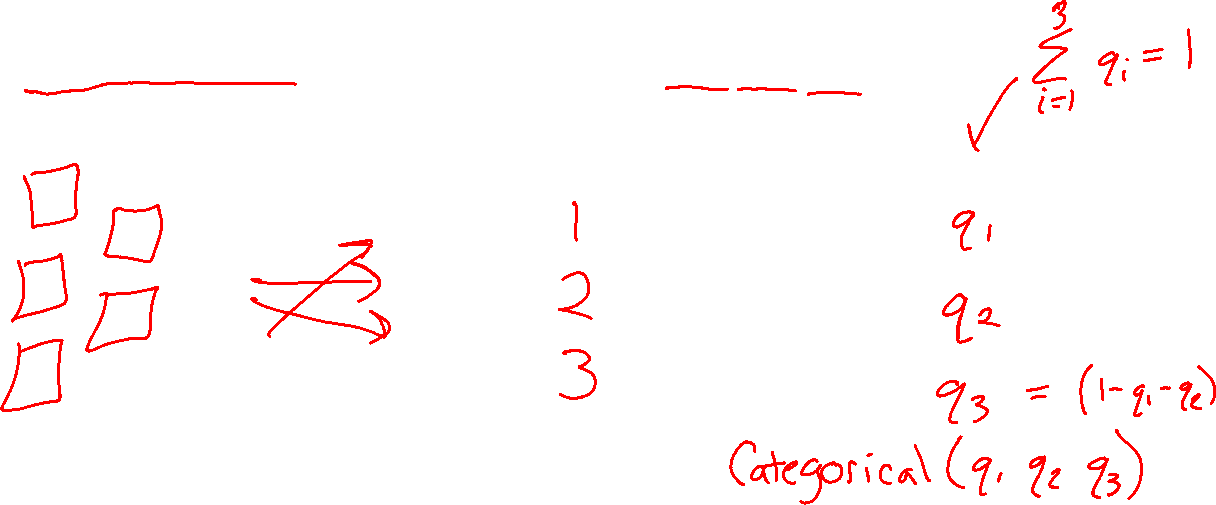 3
∑ qᵢ = 1
i=1
1 q₁
2 q₂
3 q₃ = (1-q₁-q₂)
Categorical (q₁ q₂ q₃)